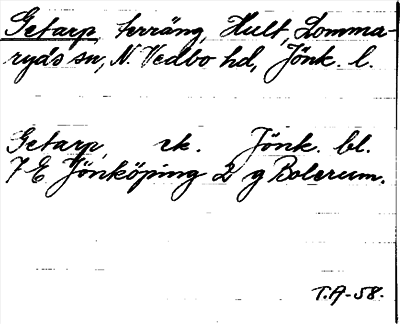 Getarp, terräng, Hult, Lomma-
ryds sn, N. Vedbo hd, Jönk. l.
Getarp, rk. Jönk. bl.
7 E Jönköping 2 g Bolerum.
T.A-58.